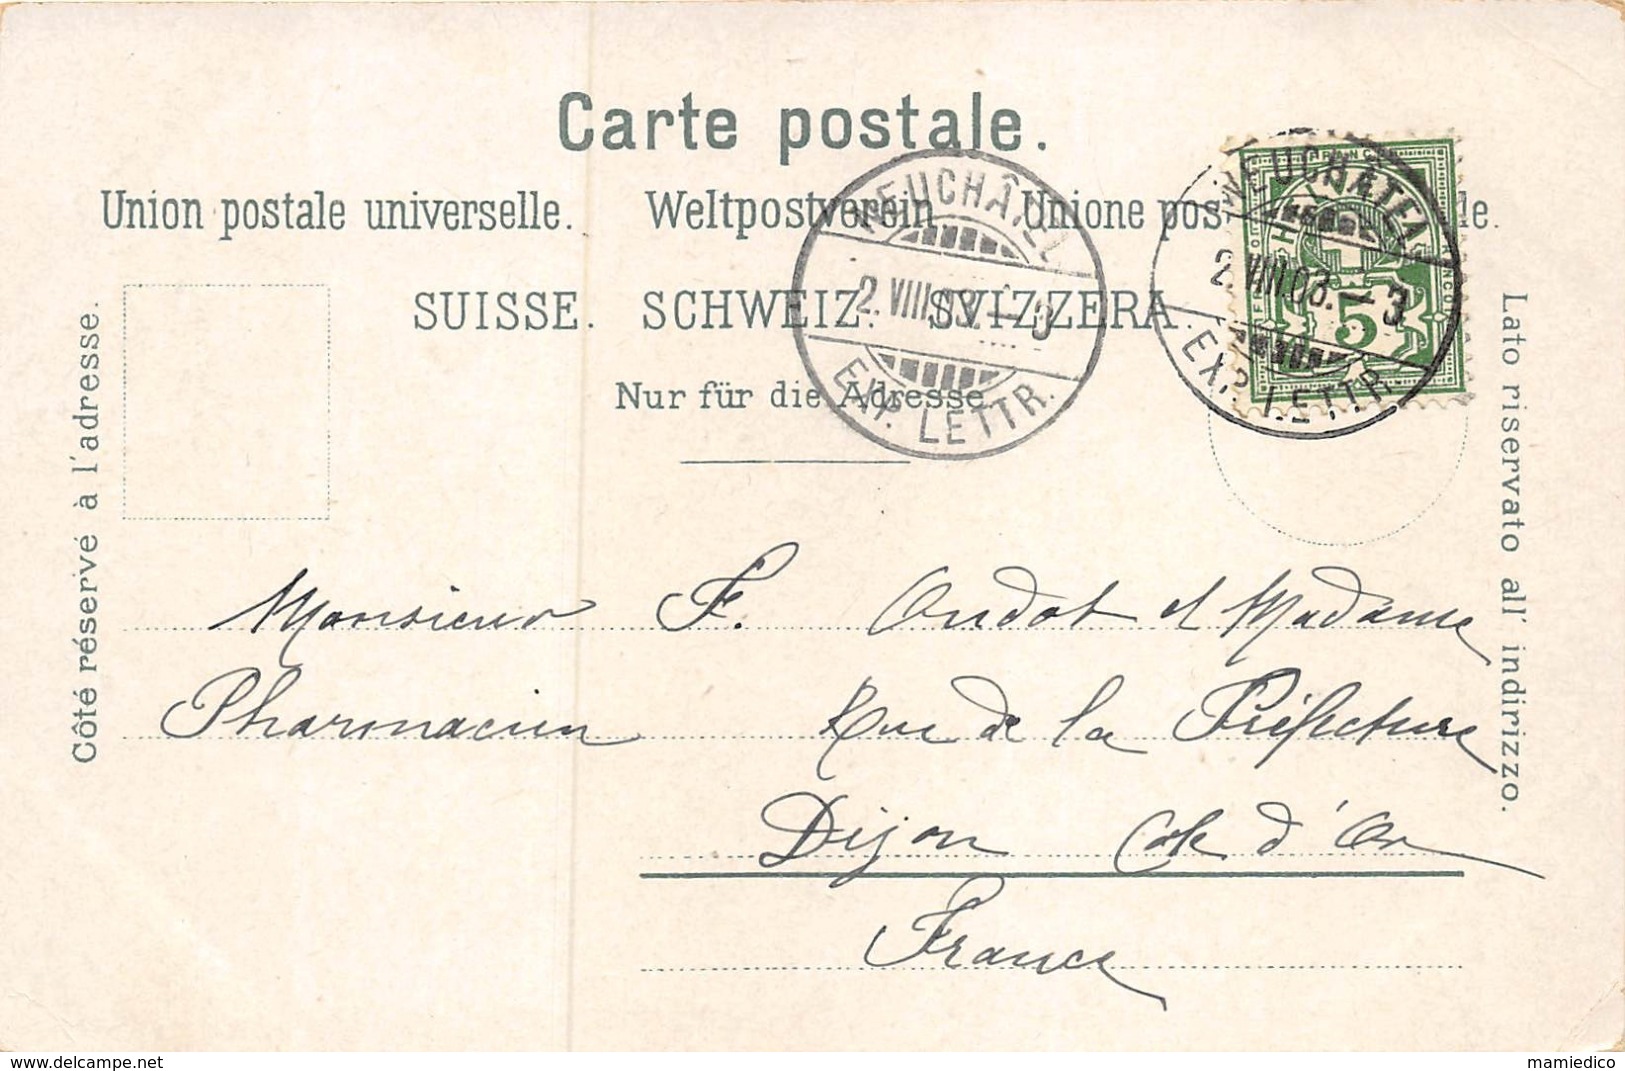 Carte postale.
Union postale universelle. Weltpostverein. Unione pos le.
SUISSE. SCHWEIZ. SVIZZERA.
Nur für die Adresse
Côté réservé à l'adresse.
Lato riservato all' indirizzo.
NEUCHÂTEL
2.VIII.03.–3
EXP. LETTR.
NEUCHÂTEL
2.VIII.03.–3
EXP. LETTR.
FRANCO
5
Monsieur F. Oudot et Madame
Pharmacien Rue de la Préfecture
Dijon Côte d'Or
France
delcampe.net
mamiedico